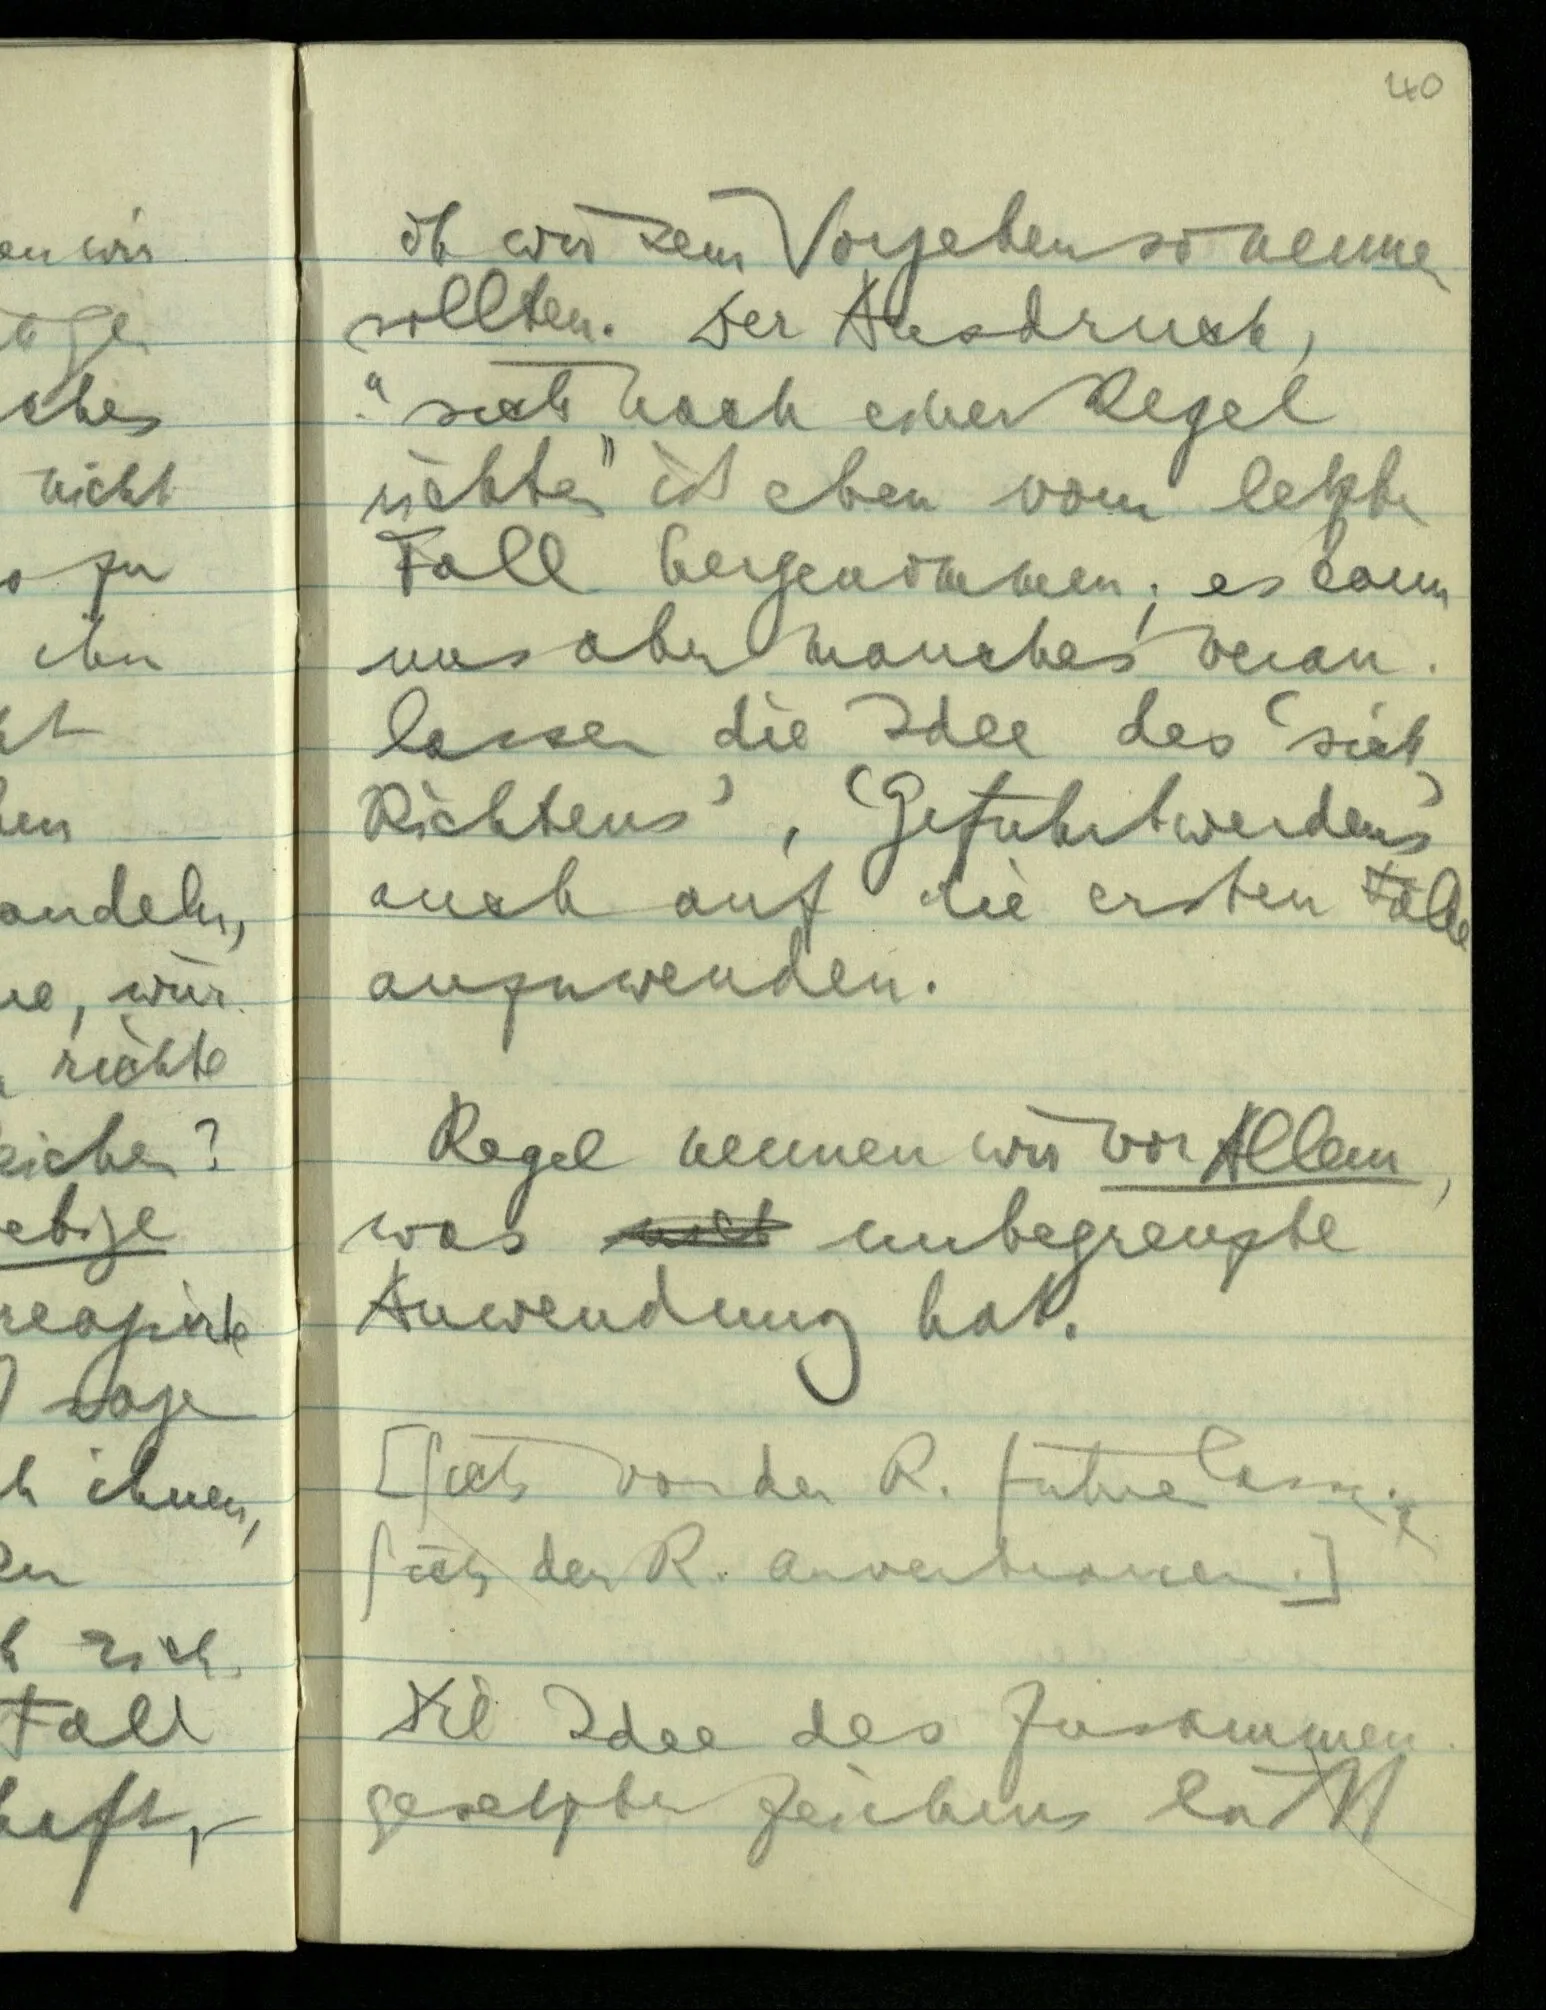 en wir
age
sches
nicht
o zu
ihn
ht
hen
andeln,
ne, wür
richte
eichen?
ebige
reagirte
sage
h ihnen,
en
h sich
Fall
haft, –
40
ob wir sein Vorgehen so nennen
sollten. Der Ausdruck,
"sich nach einer Regel
richten" ist eben vom letzten
Fall hergenommen; es kann
uns aber manches veran-
lassen die Idee des 'sich
Richtens', 'Geführtwerdens'
auch auf die ersten Fälle
anzuwenden.
Regel nennen wir vor Allem,
was unbegrenzte
Anwendung hat.
[Sich von der R. führen lassen.
Sich der R. anvertrauen.]
Die Idee des Zusammen-
gesetzten Zeichens läßt